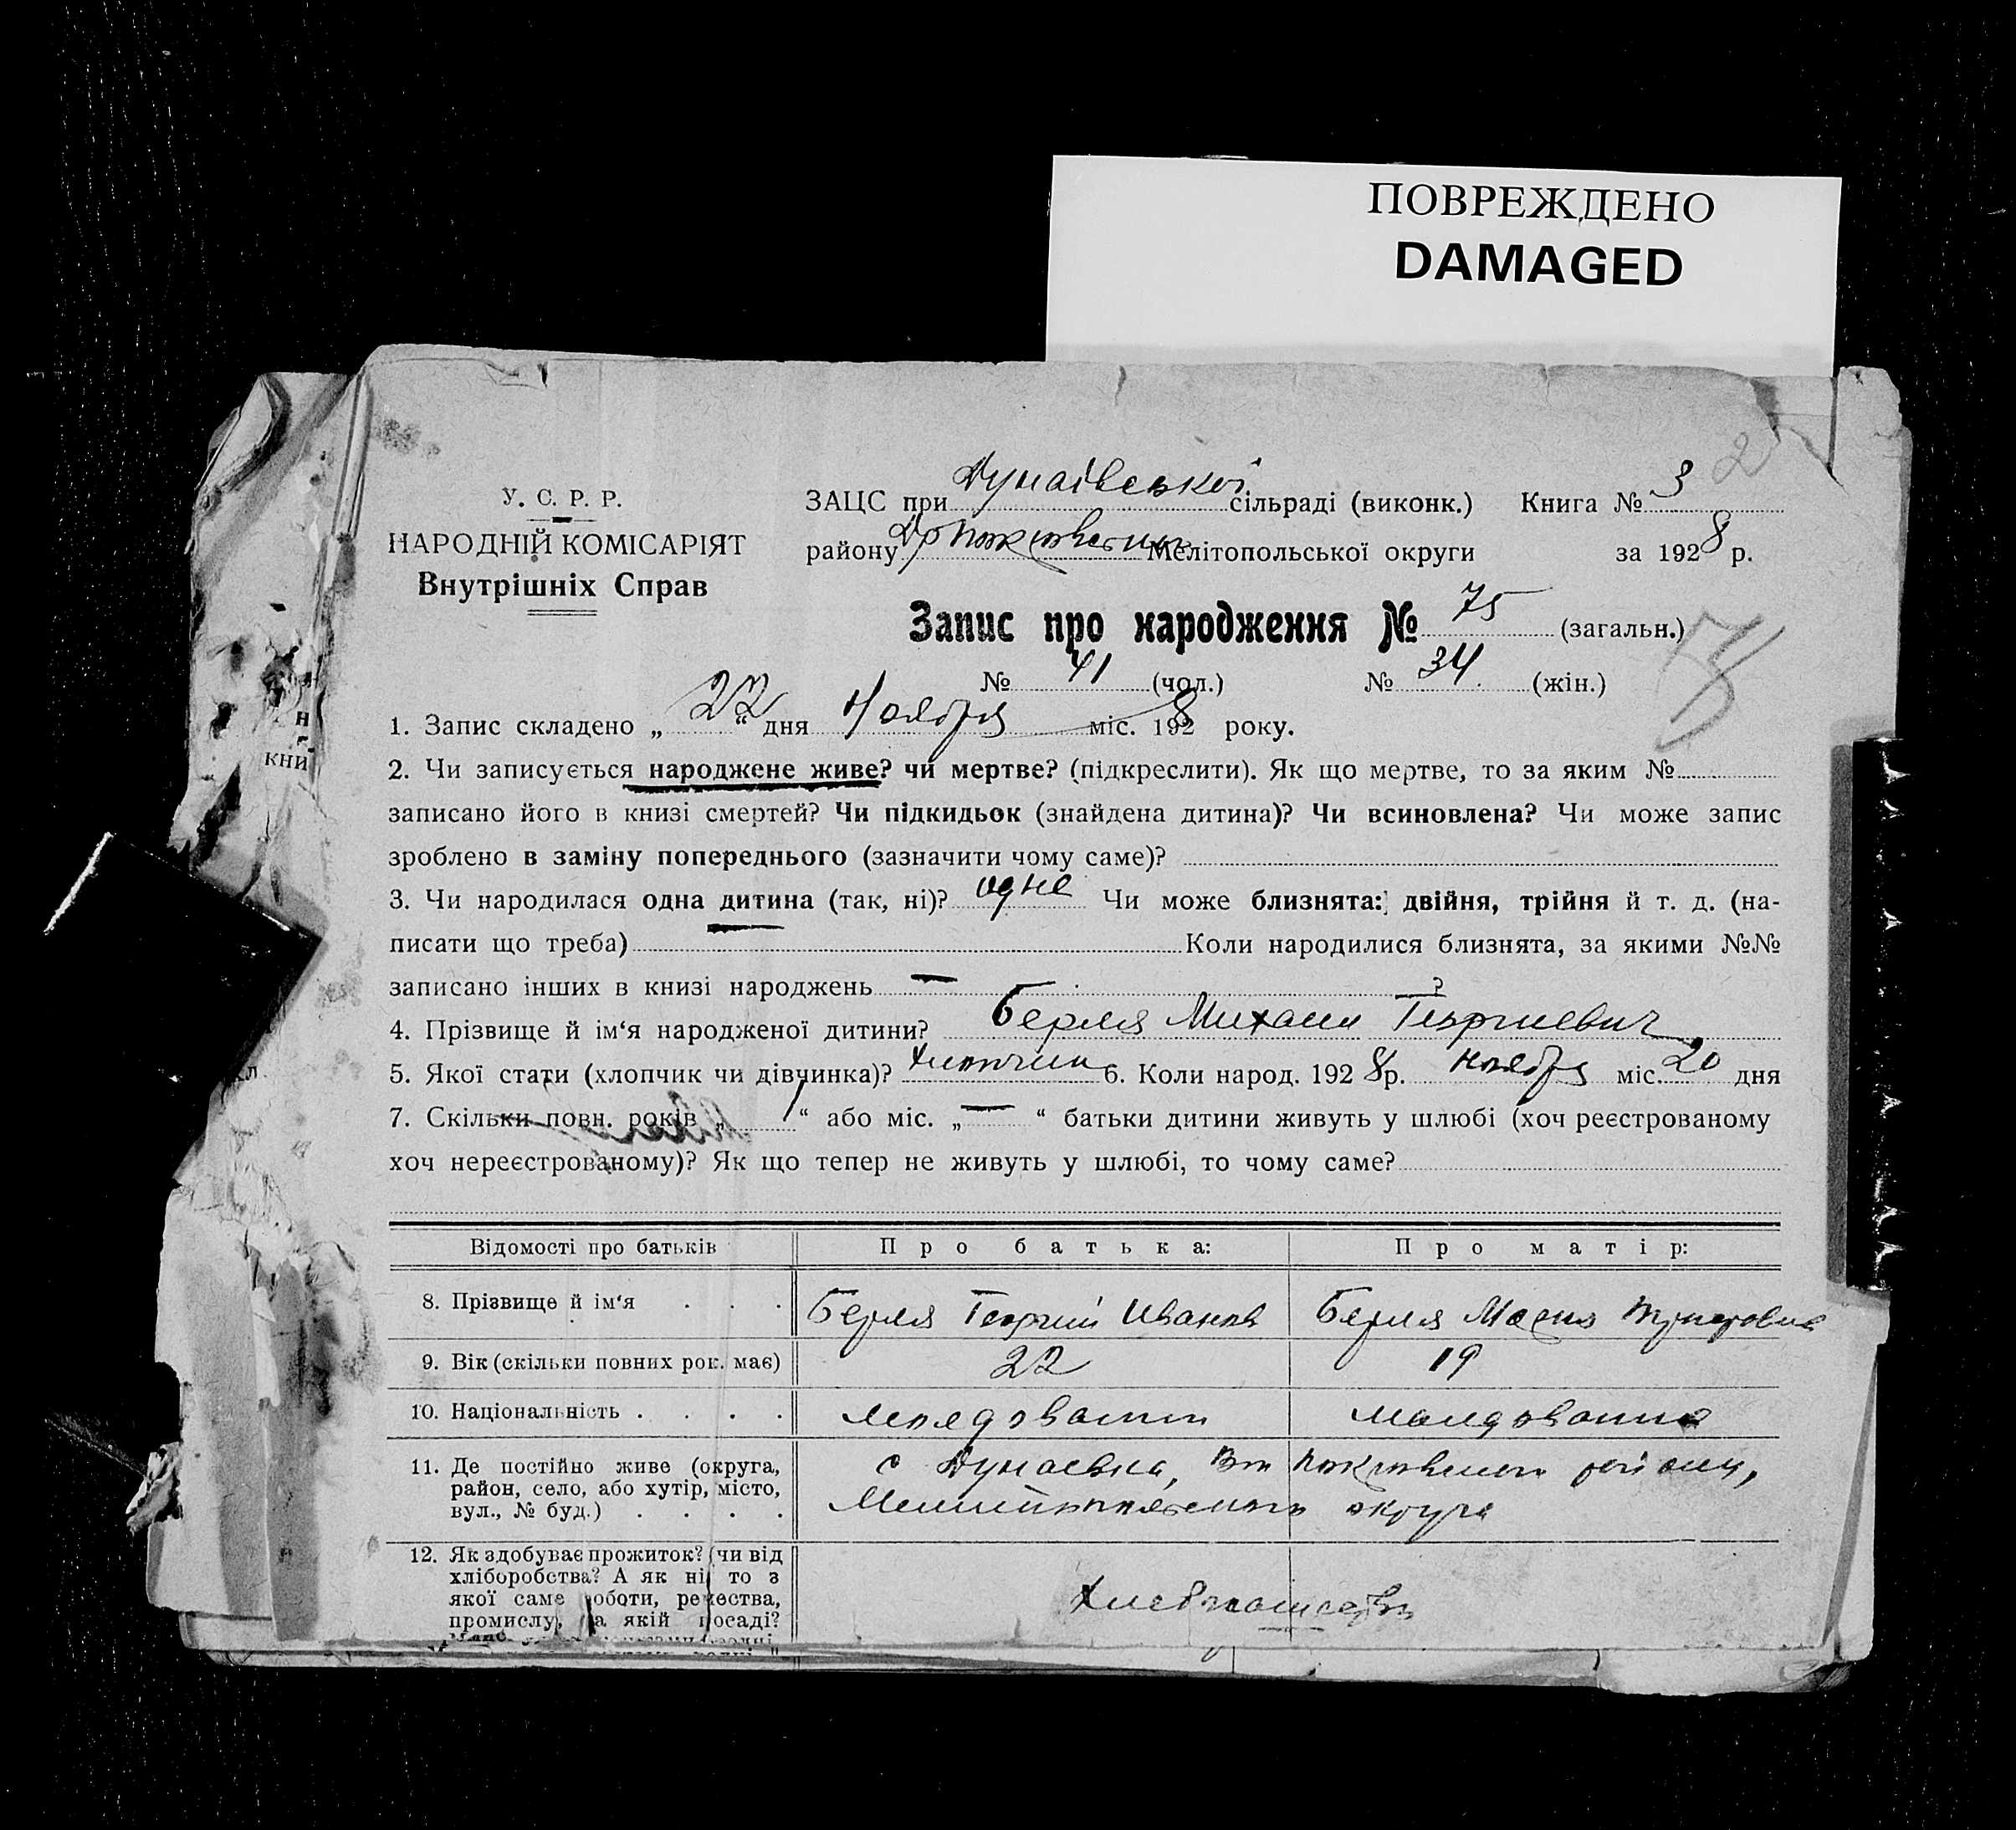 ПОВРЕЖДЕНО
DAMAGED
2
У. С. Р. Р.
НАРОДНІЙ КОМІСАРІЯТ
Внутрішніх Справ
ЗАЦС при Дунаівської сільраді (виконк.) Книга № 3
району Мелітопольської округи за 1928 р.
Запис про народження № 75 (загальн.)
№ 41 (чол.) № 34 (жін.)
1. Запис складено „ 22 “ дня Ноября міс. 1928 року.
2. Чи записується народжене живе? чи мертве? (підкреслити). Як що мертве, то за яким №
записано його в книзі смертей? Чи підкидьок (знайдена дитина)? Чи всиновлена? Чи може запис
зроблено в заміну попереднього (зазначити чому саме)?
3. Чи народилася одна дитина (так, ні)? одне Чи може близнята: двійня, трійня й т. д. (на-
писати що треба) Коли народилися близнята, за якими №№
записано інших в книзі народжень — ?
4. Прізвище й ім‘я народженої дитини? Берля Михаил Георгиевич
5. Якої стати (хлопчик чи дівчинка)? Хлопчик 6. Коли народ. 1928 р. ноября міс. 20 дня
7. Скільки повн. років „ 1 “ або міс. „ — “ батьки дитини живуть у шлюбі (хоч реєстрованому
хоч нереєстрованому)? Як що тепер не живуть у шлюбі, то чому саме?
Відомості про батьків Про батька: Про матір:
8. Прізвище й ім‘я . . . Берля Георгий Иванов Берля Мария
9. Вік (скільки повних рок. має) 22 19
10. Національність . . . . молдованин молдованка
11. Де постійно живе (округа,
район, село, або хутір, місто,
вул., № буд.) . . . .
с Дунаевка, району,
Мелитопольского округа
12. Як здобуває прожиток? (чи від
хліборобства? А як ні, то з
якої саме роботи, ремества,
промислу, на якій посаді?
Хлебопашество
кни